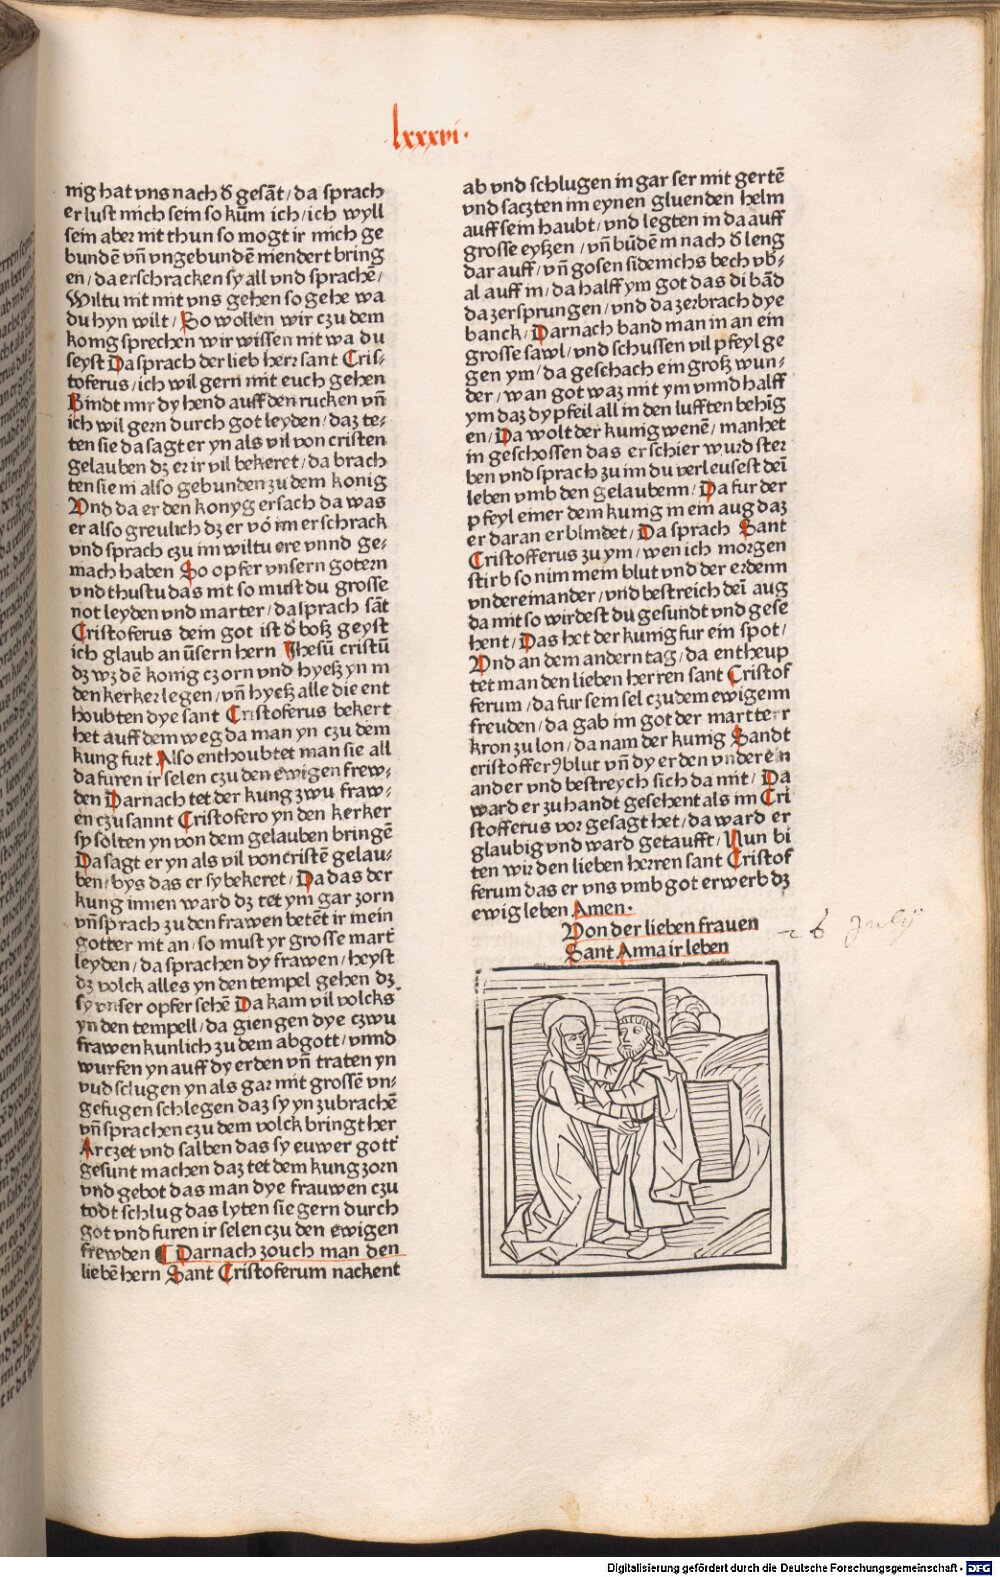 lxxxvi.
nig hat vns nach d̕ gesāt / da sprach
er lust mich sein so kūm ich / ich wyll
sein aber nit thun so mogt ir mich ge
bundē vn̄ vngebundē mendert bring
en / da erschracken sy all vnd sprachē /
Wiltu nit mit vns gehen so gehe wa
du hyn wilt / So wollen wir czu dem
konig sprechen wir wissen nit wa du
seyst Da sprach der lieb herr sant Cris-
toferus / ich wil gern mit euch gehen
Bindt mir dy hend auff den rucken vn̄
ich wil gern durch got leyden / daz te-
ten sie da sagt er yn als vil von cristen
gelauben dz er ir vil bekeret / da brach
ten sie in also gebunden zu dem konig
Vnd da er den konyg ersach da was
er also greulich dz er vō im erschrack
vnd sprach czu im wiltu ere vnnd ge-
mach haben So opfer vnsern gotern
vnd thustu das nit so must du grosse
not leyden vnd marter / da sprach sāt
Cristoferus dein got ist d̕ boß geyst
ich glaub an v̄sern hern Jhesū cristū
dz wz dē konig czorn vnd hyeß yn in
den kerker legen / vn̄ hyeß alle die ent
houbten dye sant Cristoferus bekert
het auff dem weg da man yn czu dem
kung furt Also enthoubtet man sie all
da furen ir selen czu den ewigen frew-
den Darnach tet der kung zwu fraw-
en czu sannt Cristofero yn den kerker
sy solten yn von dem gelauben bringē
Da sagt er yn als vil von cristē gelau-
ben / bys das er sy bekeret / Da das der
kung innen ward dz tet ym gar zorn
vn̄ sprach zu den frawen betēt ir mein
gotter nit an / so must yr grosse mart̕
leyden / da sprachen dy frawen / heyst
dz volck alles yn den tempel gehen dz
sy vnser opfer sehē Da kam vil volcks
yn den tempell / da giengen dye czwu
frawen kunlich zu dem abgott / vnnd
wurfen yn auff dy erden vn̄ traten yn
vnd sclugen yn als gar mit grossē vn-
gefugen schlegen daz sy yn zubrachē
vn̄ sprachen czu dem volck bringt her
Arczet vnd salben das sy euwer gott̕
gesunt machen daz tet dem kung zorn
vnd gebot das man dye frauwen czu
todt schlug das lyten sie gern durch
got vnd furen ir selen czu den ewigen
frewden ⸿ Darnach zouch man den
liebē hern Sant Cristoferum nackent
ab vnd schlugen in gar ser mit gertē
vnd saczten im eynen gluenden helm
auff sein haubt / vnd legten in da auff
grosse eyßen / vn̄ būdē in nach d̕ leng
dar auff / vn̄ gosen sidenichs bech vb-
al auff in / da halff ym got das di bād
da zersprungen / vnd da zerbrach dye
banck / Darnach band man in an ein
grosse sawl / vnd schussen vil pfeyl ge
gen ym / da geschach ein groß wun-
der / wan got waz mit ym vnnd halff
ym daz dy pfeil all in den lufften behig
en / Da wolt der kunig wenē / man het
in geschossen das er schier wurd ster
ben vnd sprach zu im du verleusest deī
leben vmb den gelaubenn / Da fur der
pfeyl einer dem kunig in ein aug daz
er daran erblindet / Da sprach Sant
Cristofferus zu ym / wen ich morgen
stirb so nim mein blut vnd der erdenn
vndereinander / vnd bestreich deī aug
da mit so wirdest du gesundt vnd gese
hent / Das het der kunig fur ein spot /
Vnd an dem andern tag / da entheup
tet man den lieben herren sant Cristof
ferum / da fur sein sel czu dem ewigenn
freuden / da gab im got der martterr
kron zu lon / da nam der kunig Sandt
cristofferꝰ blut vn̄ dy erden vnderein
ander vnd bestreych sich da mit / Da
ward er zu handt gesehent als im Cri
stofferus vor gesagt het / da ward er
glaubig vnd ward getaufft / Nun bi
ten wir den lieben herren sant Cristof
ferum das er vns vmb got erwerb dz
ewig leben Amen.
Von der lieben frauen
Sant Anna ir leben
26 Julij
Digitalisierung gefördert durch die Deutsche Forschungsgemeinschaft - DFG